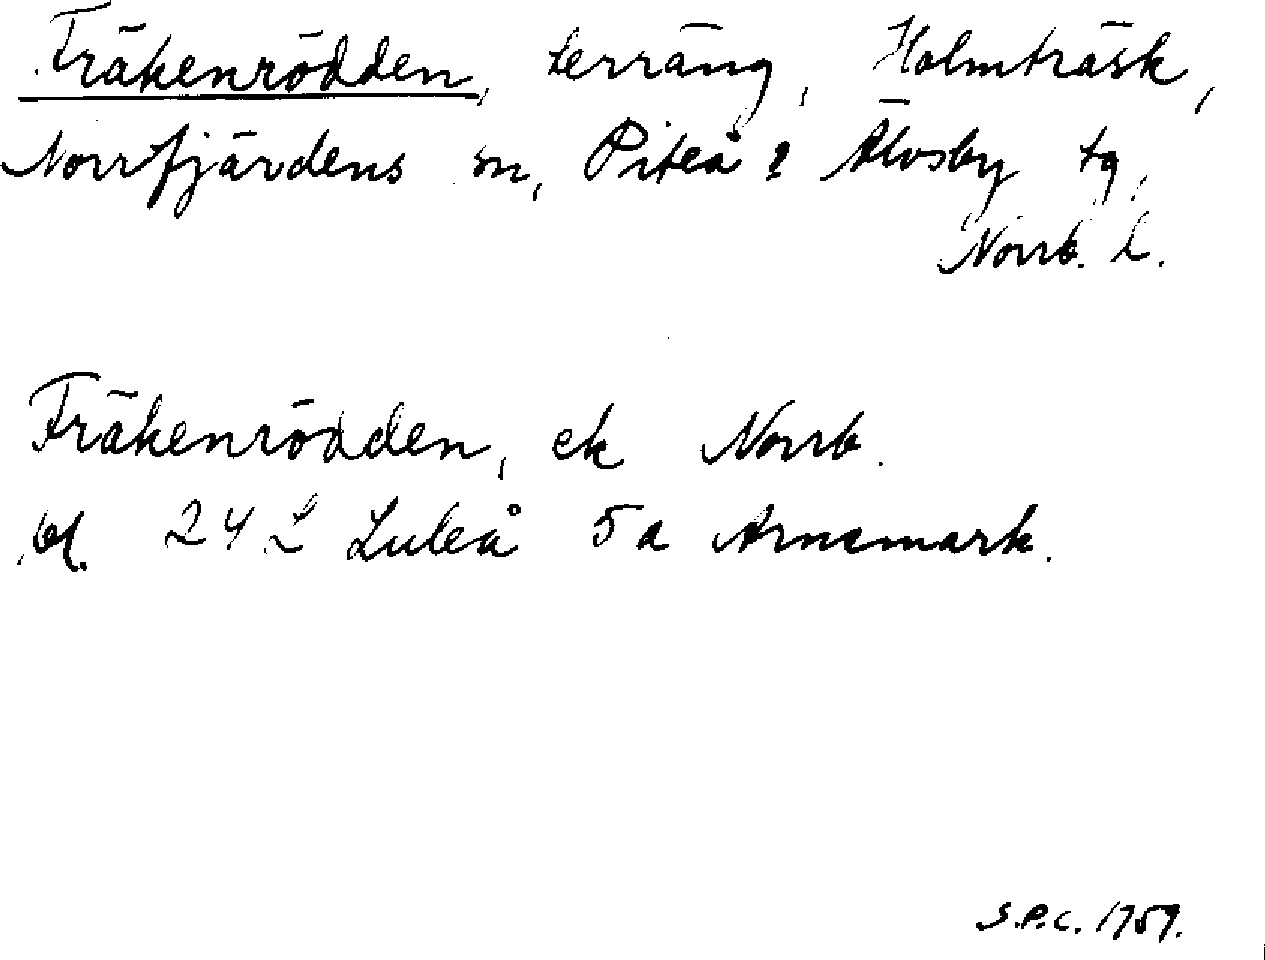 Fräkenrödden, terräng, Holmträsk,
Norrfjärdens sn, Piteå & Älvsby tg,
Norrb. l.
Fräkenrödden, ek Norrb.
bl. 24 L Luleå 5a Arnemark.
S.P.C. 1759.